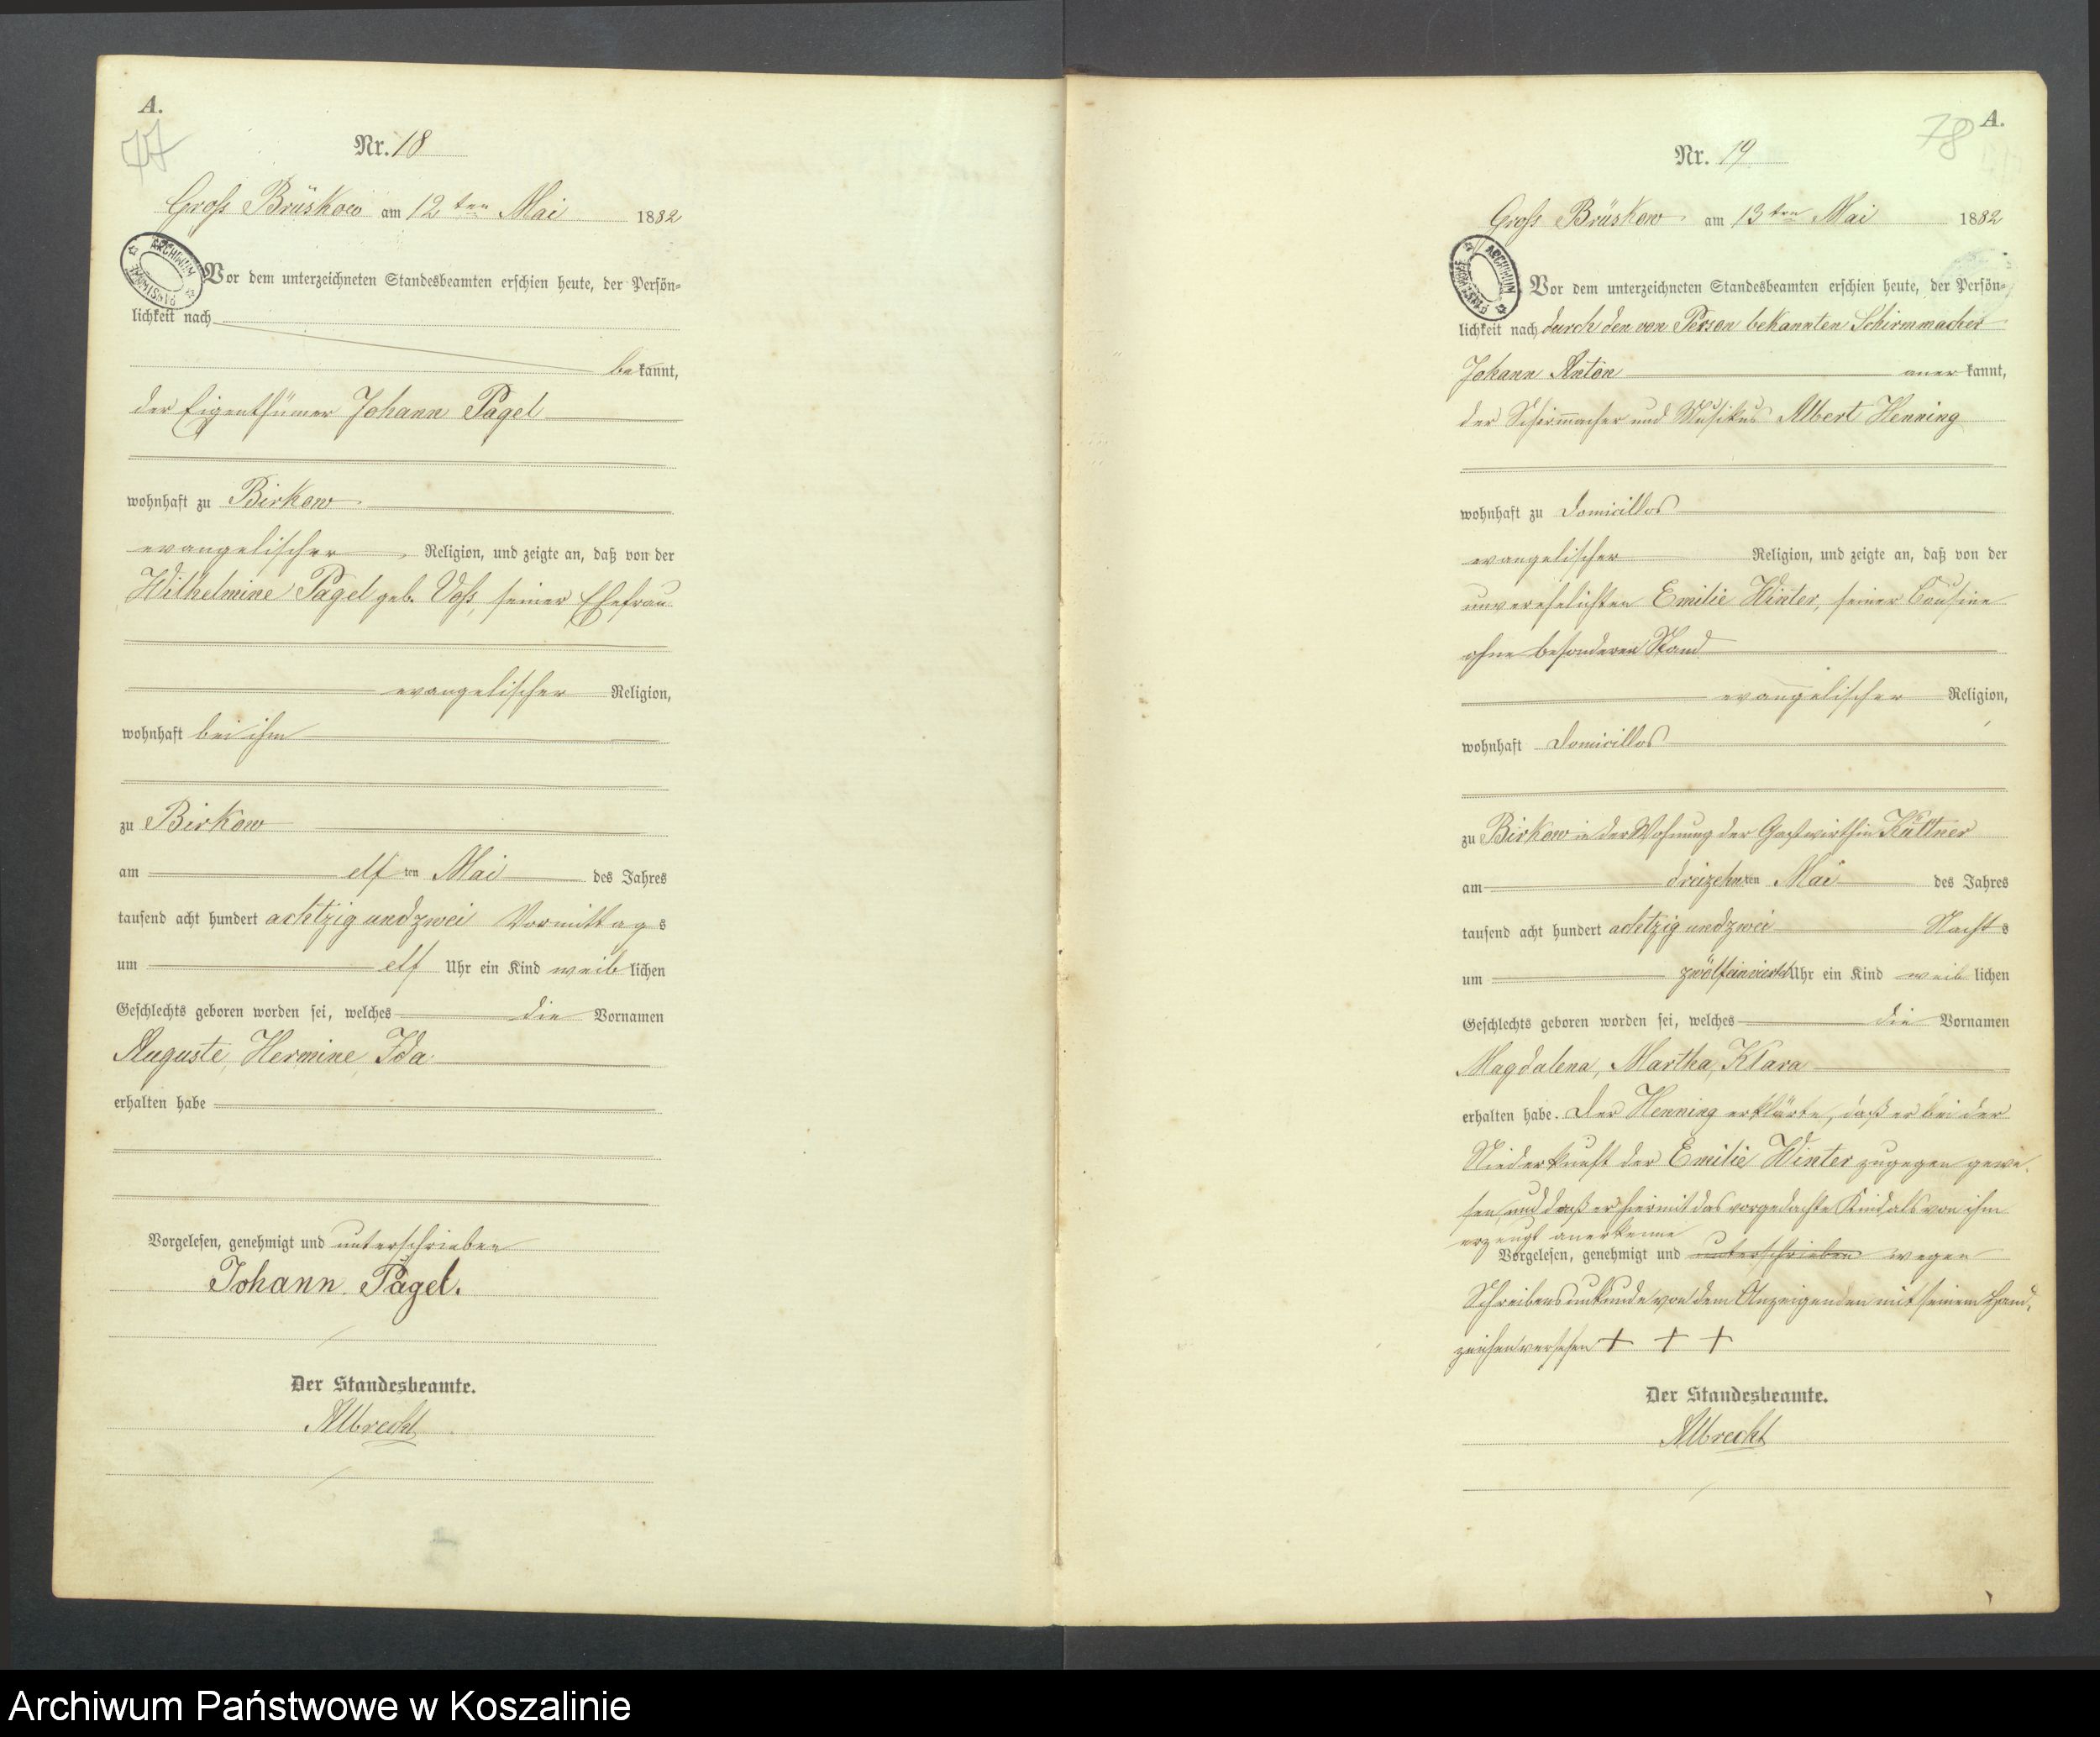 A.
77
Nr. 18
Groß Brüskow am 12ten Mai 1882
ARCHIWUM PAŃSTWOWE
Vor dem unterzeichneten Standesbeamten erschien heute, der Persön-
lichkeit nach
bekannt,
der Eigenthümer Johann Pagel
wohnhaft zu Birkow
evangelischer Religion, und zeigte an, daß von der
Wilhelmine Pagel geb. Voß, seiner Ehefrau
evangelischer Religion,
wohnhaft bei ihm
zu Birkow
am elften Mai des Jahres
tausend acht hundert achtzig und zwei Vormittags
um elf Uhr ein Kind weiblichen
Geschlechts geboren worden sei, welches die Vornamen
Auguste, Hermine, Ida
erhalten habe
Vorgelesen, genehmigt und unterschrieben
Johann Pagel.
Der Standesbeamte.
Albrecht
A.
78
Nr. 19
Groß Brüskow am 13ten Mai 1882
ARCHIWUM PAŃSTWOWE
Vor dem unterzeichneten Standesbeamten erschien heute, der Persön-
lichkeit nach durch den von Person bekannten Schirmmacher
Johann Anton anerkannt,
der Schirmacher und Musikus Albert Henning
wohnhaft zu domicillos
evangelischer Religion, und zeigte an, daß von der
unverehelichten Emilie Winter, seiner Cousine
ohne besonderen Stand
evangelischer Religion,
wohnhaft domicillos
zu Birkow in der Wohnung der Gastwirthin Küttner
am dreizehnten Mai des Jahres
tausend acht hundert achtzig und zwei Nachts
um zwölfeinviertel Uhr ein Kind weiblichen
Geschlechts geboren worden sei, welches die Vornamen
Magdalena, Martha, Klara
erhalten habe. Der Henning erklärte, daß er bei der
Niederkunft der Emilie Winter zugegen gewe-
sen, und daß er hiermit das vorgedachte Kind als von ihm
erzeugt anerkenne
Vorgelesen, genehmigt und unterschrieben wegen
Schreibensunkunde von dem Anzeigenden mit seinem Hand-
zeichen versehen + + +
Der Standesbeamte.
Albrecht
Archiwum Państwowe w Koszalinie